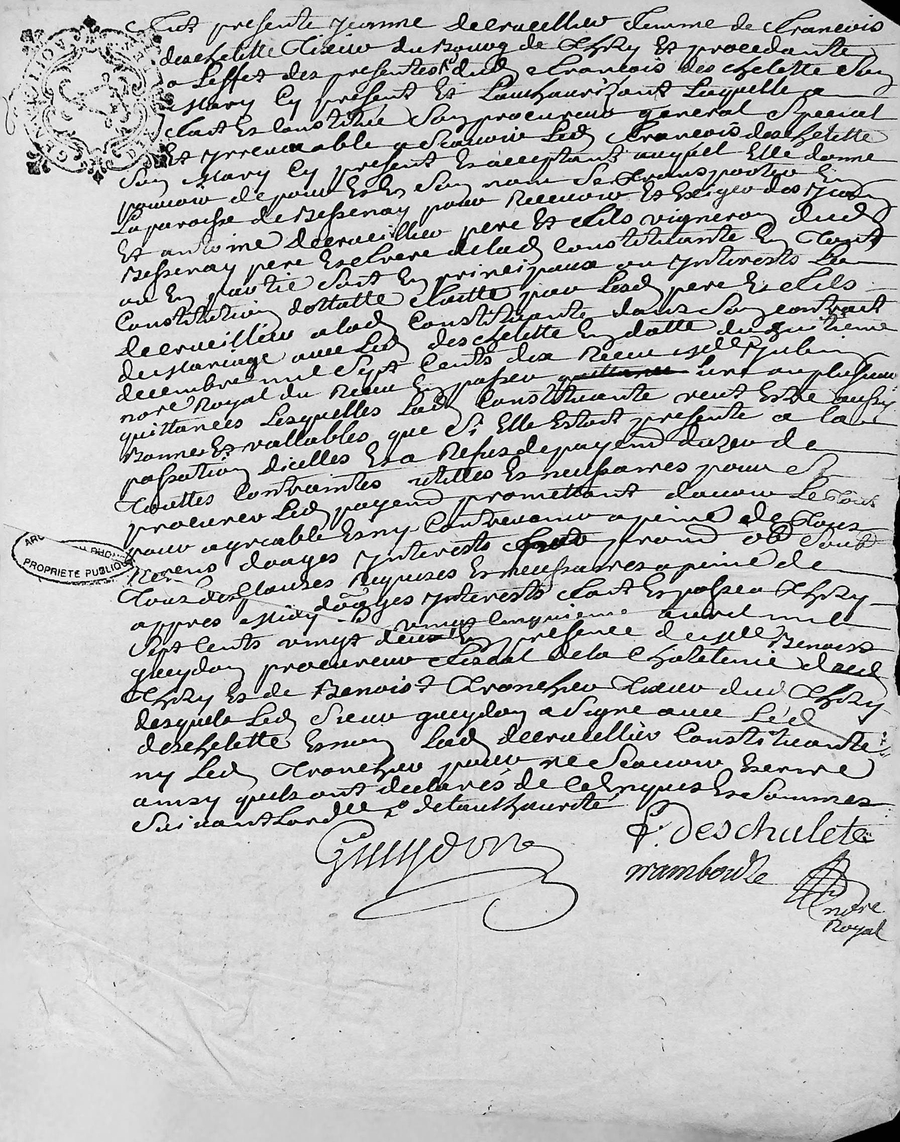 fut presente Jeanne Decrucillieu femme de francois
deschelette tixeur du Bourg de Thizy Et procedante
a Leffet des presentes dud francois deschelette Son
Mary Cy present Et Lauthaurizant Laquelle a
fait Et Constitué Son procureur general Special
Et Irrevocable a Scavoir Led francois deschelette
Son Mary Cy present Et acceptant auquel Elle donne
pouvoir de pour Et En Son nom Se transporter En
La paroisse de Bessenay pour Recevoir Et Exiger des Jean
Et antoine decrucillieu pere Et fils vignerons dud
Bessenay pere Et frere de lad Constituante En tout
ou En partie Soit En principaux ou Interests La
Constitution dottalle faitte par Lesd pere Et fils
decrucillieu a lad Constituante dans Son contrat
de Mariage avec Led deschelette En datte du huitieme
decembre mil Sept Cents dix Receu Me Jubin
nore Royal du Receu En passer une ou plusieurs
quittances Lesquelles Lad Constituante veut Estre aussy
Bonnes Et vallables que Si Elle Estoit presente a la
passation dicelles Et a Refus de payemt duzer de
touttes Contraintes utilles Et necessaires pour
procurer Led payemt promettant davoir Le tout
pour agreable Et ny Contrevenir a peine de tous
depens domages Interests
tous des Clauses Requises Et necessaires a peine de
domages Interests fait Et passé a Thizy
appres Midy Le vingt Cinquieme avril mil
Sept Cents vingt deux En presence de Me Benoist
gueydon procureur fiscal de la Chatelenie dud
Thizy Et de Benoist tronchier tixeur dud Thizy
desquels Led Sieur gueydon a Signé avec Led
deschelette Et non Lad decrucillieu Constituante
ny Led tronchier pour ne Scavoir Escrire
ainsy quils ont declarés de Ce Enquis Et Sommés
Suivant Lordce Ro de tauthaurité
Gueydon
f. deschalete
nore
Royal
ARCH
PROPRIETE PUBLIQUE